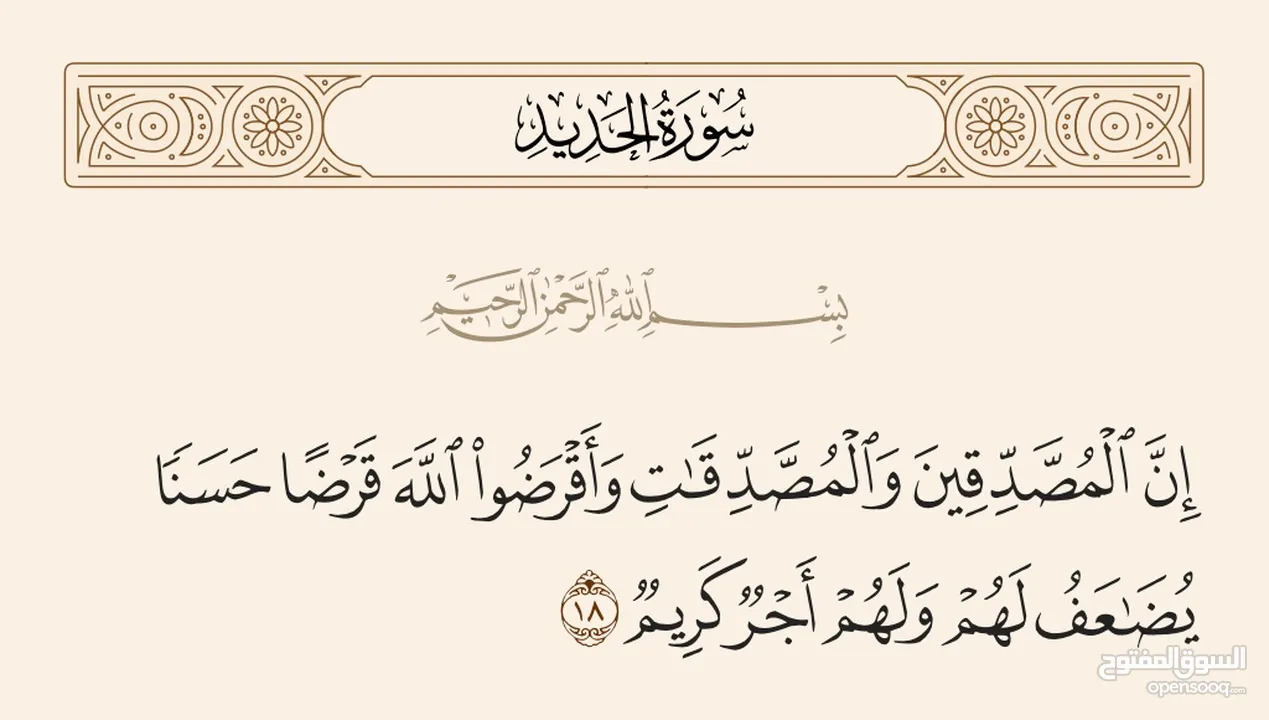 سُورَةُ الحَدِيدِ
بِسْمِ ٱللَّهِ ٱلرَّحْمَٰنِ ٱلرَّحِيمِ
إِنَّ ٱلْمُصَّدِّقِينَ وَٱلْمُصَّدِّقَٰتِ وَأَقْرَضُوا۟ ٱللَّهَ قَرْضًا حَسَنًا
يُضَٰعَفُ لَهُمْ وَلَهُمْ أَجْرٌ كَرِيمٌ ١٨
السوق المفتوح
opensooq.com